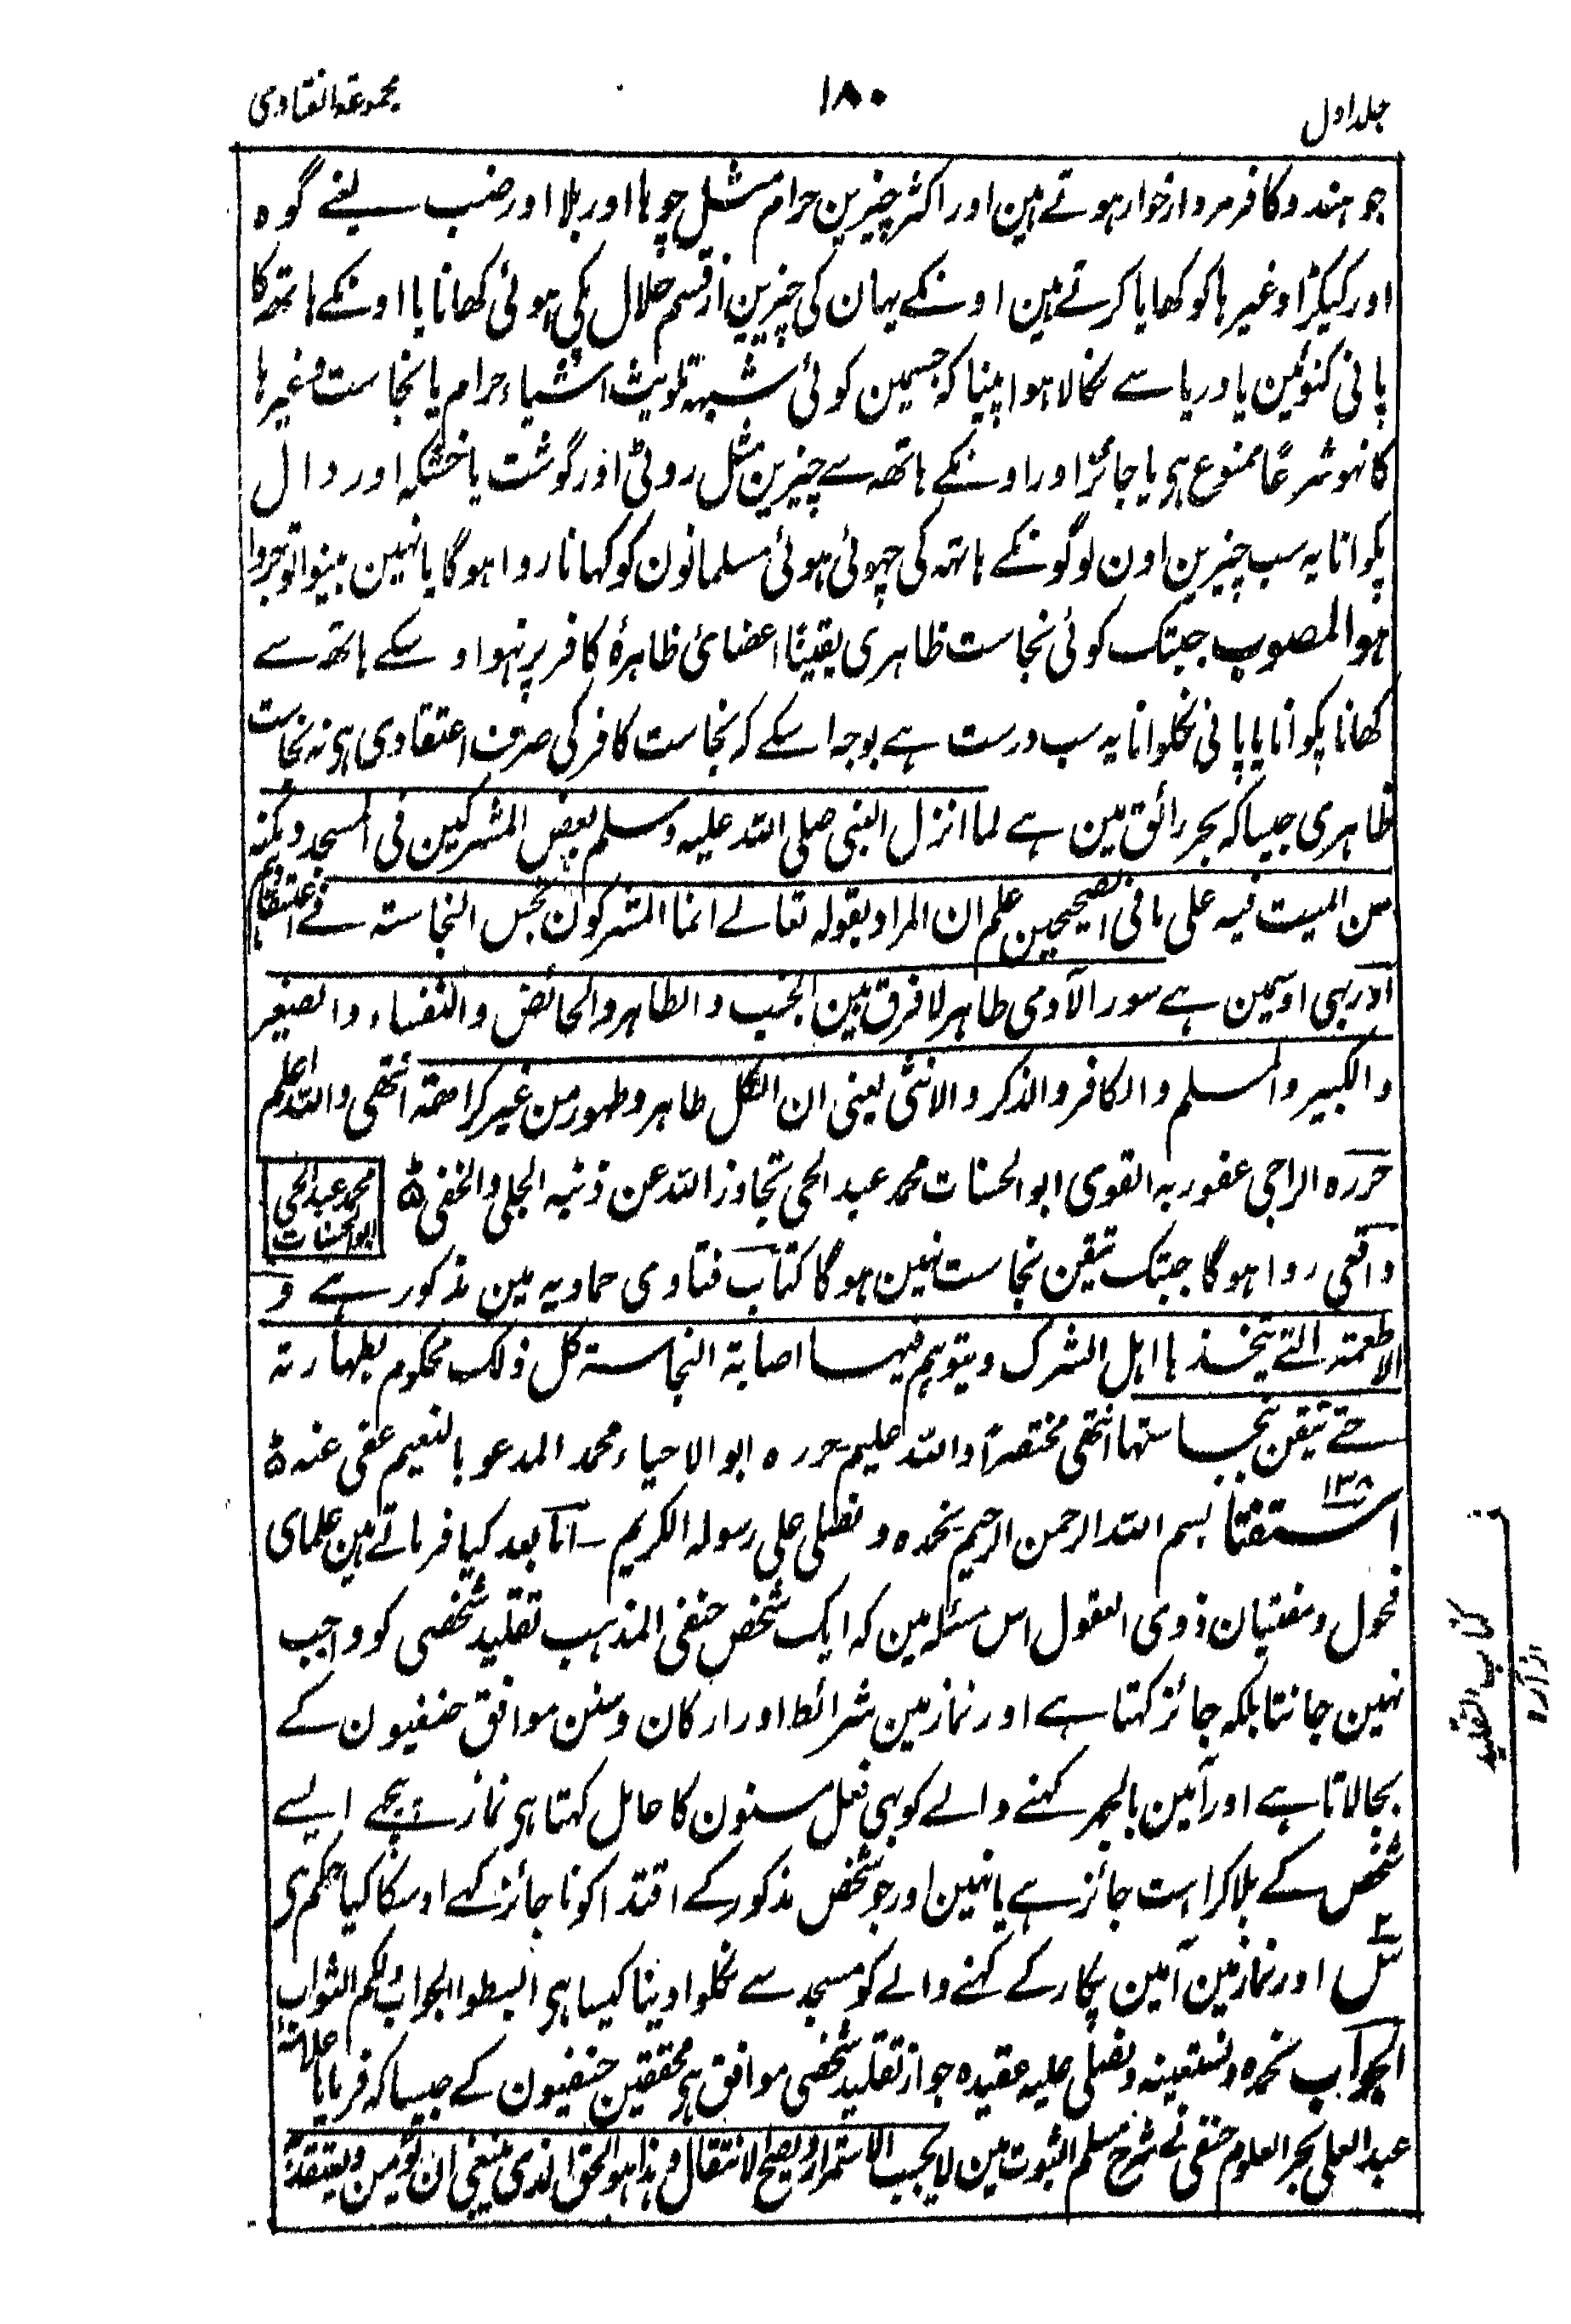 جلد اول
۱۸۰
مجموعۃ الفتاوی
جو ہندو کافر مردار خوار ہوتے ہین اور اکثر چیزین حرام مثل چوہا اور بلا اور ضب یعنے گوہ
اور کیکڑا وغیرہا کو کھایا کرتے ہین اونکے یہان کی چیزین از قسم حلال پکی ہوئی کھانا یا اونکے ہاتھ کا
پانی کنوئین یا دریا سے نکالا ہوا پینا کہ جسمین کوئی شبہہ تلویث اشیاء حرام یا نجاست وغیرہا
کا نہو شرعًا ممنوع ہی یا جائز اور اونکے ہاتھہ سے چیزین مثل روٹی اور گوشت یا خشکہ اور دال
پکوانا یہ سب چیزین اون لوگونکے ہاتہ کی چہوئی ہوئی مسلمانون کو کہانا روا ہوگا یا نہین بینوا توجروا
ہو المصوب جبتک کوئی نجاست ظاہری یقینًا اعضائ ظاہرۂ کافر پر نہو اوسکے ہاتھ سے
کھانا پکوانا یا پانی نکلوانا یہ سب درست ہے بوجہ اسکے کہ نجاست کافر کی صرف اعتقادی ہی نہ نجاست
ظاہری جیسا کہ بحر رائق مین ہے لما انزل النبی صلی اللہ علیہ وسلم بعض المشرکین فی المسجد ومکنہ
من المبیت فیہ علی ما فی الصحیحین علم ان المراد بقولہ تعالے انما المشرکون نجس النجاستہ فے اعتقادہم
اور بہی اوسمین ہے سور الآدمی طاہر لا فرق بین الجنب والطاہر والحائض والنفساء والصغیر
والکبیر والمسلم والکافر والذکر والانثی یعنی ان الکل طاہر وطہور من غیر کراہتہ انتھی واللہ اعلم
حررہ الراجی عفو ربہ القوی ابو الحسنات محمد عبد الحی تجاوز اللہ عن ذنبہ الجلی والخفی
محمد عبد الحی
ابو الحسنات
واقعی روا ہوگا جبتک تیقن نجاست نہین ہوگا کتاب فتاوی حمادیہ مین مذکور ہے و
الاطعمتہ التے یتخذہا اہل الشرک ویتوہم فیہا اصابۃ النجاستہ کل ذلک محکوم بطہارتہ
حتے تیقن بنجاستہا انتھی مختصرًا واللہ علیم حررہ ابو الاحیاء محمد المدعو بالنعیم عفی عنہ
۱۳۸
استفتا بسم اللہ الرحمن الرحیم نحمدہ ونصلی علی رسولہ الکریم ـ اما بعد کیا فرماتے ہین علمای
فحول ومفتیان ذوی العقول اس مسئلہ مین کہ ایک شخص حنفی المذہب تقلید شخصی کو واجب
نہین جانتا بلکہ جائز کہتا ہے اور نماز مین شرائط اور ارکان وسنن موافق حنفیون کے
بجالاتا ہے اور آمین بالجہر کہنے والے کو بہی فعل مسنون کا عامل کہتا ہی نماز پیچھے ایسے
شخص کے بلا کراہت جائز ہے یا نہین اور جو شخص مذکور کے اقتدا کو ناجائز کہے اوسکا کیا حکم ہی
اور نماز مین آمین پکار کے کہنے والے کو مسجد سے نکلوا دینا کیسا ہی ابسطوا الجواب لکم الثواب
الجواب نحمدہ ونستعینہ ونصلی علیہ عقیدہ جواز تقلید شخصی موافق ہی محققین حنفیون کے جیسا کہ فرمایا علامہ
عبد العلی بحر العلوم حنفی نے شرح مسلم الثبوت مین لا یجب الاستمرار ویصح الانتقال وہذا ہو الحق الذی ینبغی ان یؤمن ویعتقد
کتاب التقلید